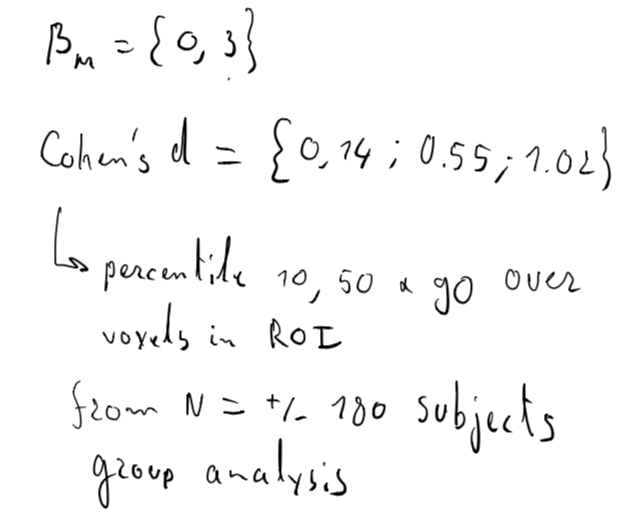 βm = {0, 3}
Cohen's d = {0,14 ; 0.55 ; 1.02}
↳ percentile 10, 50 & 90 over
voxels in ROI
from N = +/- 180 subjects
group analysis